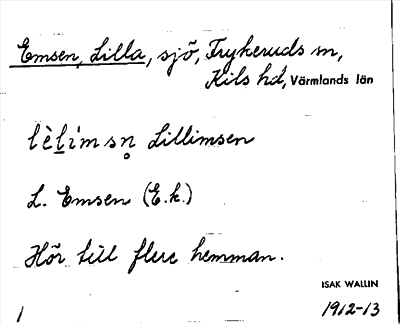 Emsen, Lilla, sjö, Frykeruds sn,
Kils hd, Värmlands län
lèlím sn̥ Lillimsen
L. Emsen (E.k.)
Hör till flere hemman.
ISAK WALLIN
1 1912-13